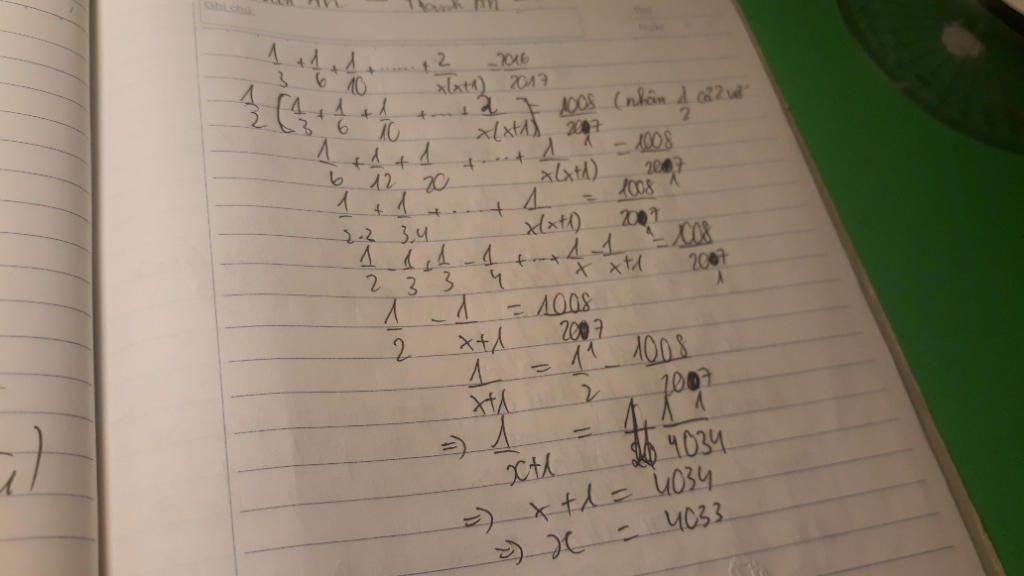 Ghi chú:
1/3 + 1/6 + 1/10 + ...... + 2/x(x+1) = 2016/2017
1/2 [1/3 + 1/6 + 1/10 + ... + 2/x(x+1)] = 1008/2017 (nhân 1/2 cả 2 vế
1/6 + 1/12 + 1/20 + ..... + 1/x(x+1) = 1008/2017
1/2.2 + 1/3.4 + .... + 1/x(x+1) = 1008/2017
1/2 - 1/3 + 1/3 - 1/4 + ... + 1/x - 1/x+1 = 1008/2017
1/2 - 1/x+1 = 1008/2017
1/x+1 = 1/2 - 1008/2017
=) 1/x+1 = 1/4034
=) x+1 = 4034
=) x = 4033